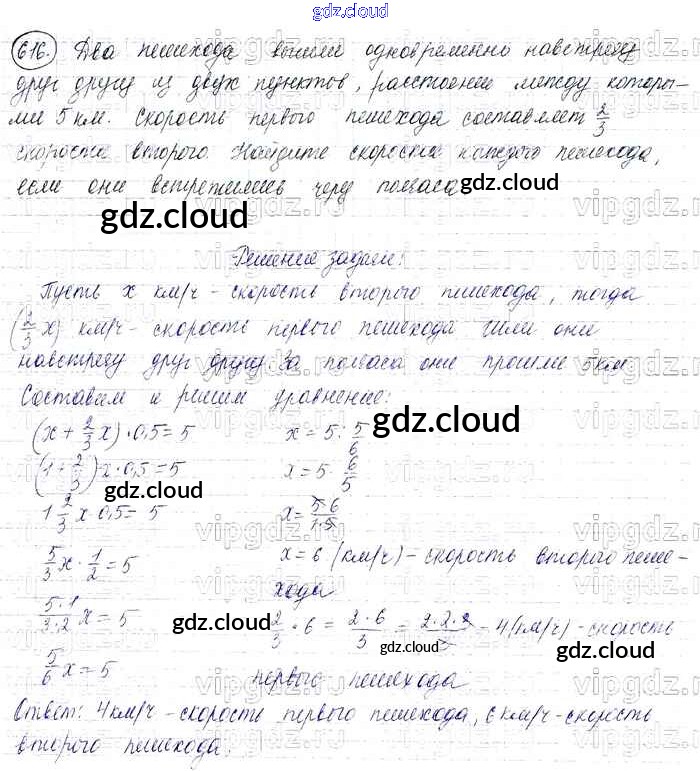 gdz.cloud
616. Два пешехода вышли одновременно навстречу
друг другу из двух пунктов, расстояние между которы-
ми 5 км. Скорость первого пешехода составляет 2/3
скорости второго. Найдите скорости каждого пешехода,
если они встретились через полчаса.
gdz.cloud
gdz.cloud
Решение задачи:
Пусть x км/ч - скорость второго пешехода, тогда
(2/3 x) км/ч - скорость первого пешехода. Шли они
навстречу друг другу. За полчаса они прошли 5 км.
Составим и решим уравнение:
(x + 2/3 x) · 0,5 = 5
(1 + 2/3) x · 0,5 = 5
gdz.cloud
1 2/3 x · 0,5 = 5
5/3 x · 1/2 = 5
5·1/3·2 x = 5
5/6 x = 5
x = 5 : 5/6
gdz.cloud
x = 5 · 6/5
x = 5·6/1·5
x = 6 (км/ч) - скорость второго пеше-
хода
gdz.cloud
2/3 · 6 = 2·6/3 = 2·2·3/3 = 4 (км/ч) - скорость
gdz.cloud
первого пешехода
Ответ: 4 км/ч - скорость первого пешехода, 6 км/ч - скорость
второго пешехода.
gdz.cloud